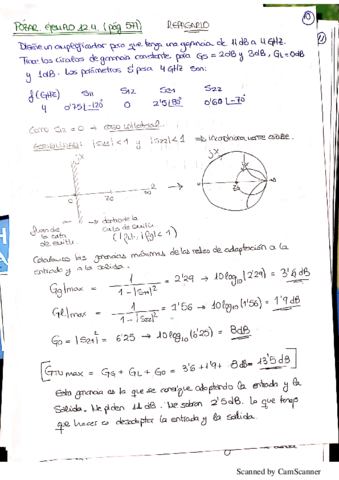 POZAR EJEMPLO 12.4 (pág 571) REPASARLO
Diseñe un amplificador para que tenga una ganancia de 11 dB a 4 GHz.
Trazar los círculos de ganancia constante para GS = 2dB y 3dB, GL = 0dB
y 1dB. Los parámetros S para 4 GHz son:
f(GHz) S11 S12 S21 S22
4 0'75∠-120 0 2'5∠80° 0'60∠-70°
Como S12 = 0 → caso unilateral
|S11| < 1 y |S22| < 1 ⇒ Incondicionalmente estable
jx
jx
(|ρL|, |ρg| < 1)
Calculamos las ganancias máximas de las redes de adaptación a la
entrada y a la salida.
Gg|max = 1 / 1-|S11|² = 2'29 → 10log10(2'29) = 3'6 dB
Gl|max = 1 / 1-|S22|² = 1'56 → 10log10(1'56) = 1'9 dB
G0 = |S21|² = 6'25 → 10log10(6'25) = 8dB
[GTU max = GG + GL + G0 = 3'6 + 1'9 + 8dB = 13'5 dB]
Esta ganancia es la que se consigue adaptando la entrada y la
salida. Me piden 11 dB. Me sobran 2'5 dB. Lo que tengo
que hacer es desadaptar la entrada y la salida.
Scanned by CamScanner